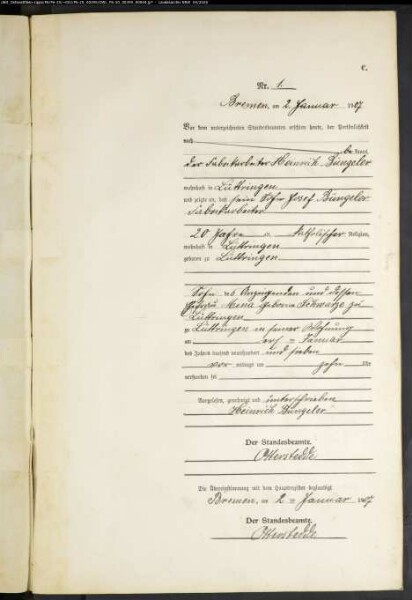 C.
Nr. 1
Bremen, am 2. Januar 1907
Vor dem unterzeichneten Standesbeamten erschien heute, der Persönlichkeit
nach
be kannt,
der Fabrikarbeiter Heinrich Büngeler
wohnhaft in Lüttringen
und zeigte an, daß sein Sohn Josef Büngeler
Fabrikarbeiter
20 Jahre alt, katholischer Religion,
wohnhaft in Lüttringen
geboren zu Lüttringen
Sohn des Anzeigenden und dessen
Ehefrau Maria geborene Schwarze zu
Lüttringen
zu Lüttringen in seiner Wohnung
am ersten Januar
des Jahres tausend neunhundert und sieben
vor mittags um zehn Uhr
verstorben sei
Vorgelesen, genehmigt und unterschrieben
Heinrich Büngeler
Der Standesbeamte.
Otterstedde
Die Übereinstimmung mit dem Hauptregister beglaubigt.
Bremen, am 2 = Januar 1907
Der Standesbeamte.
Otterstedde